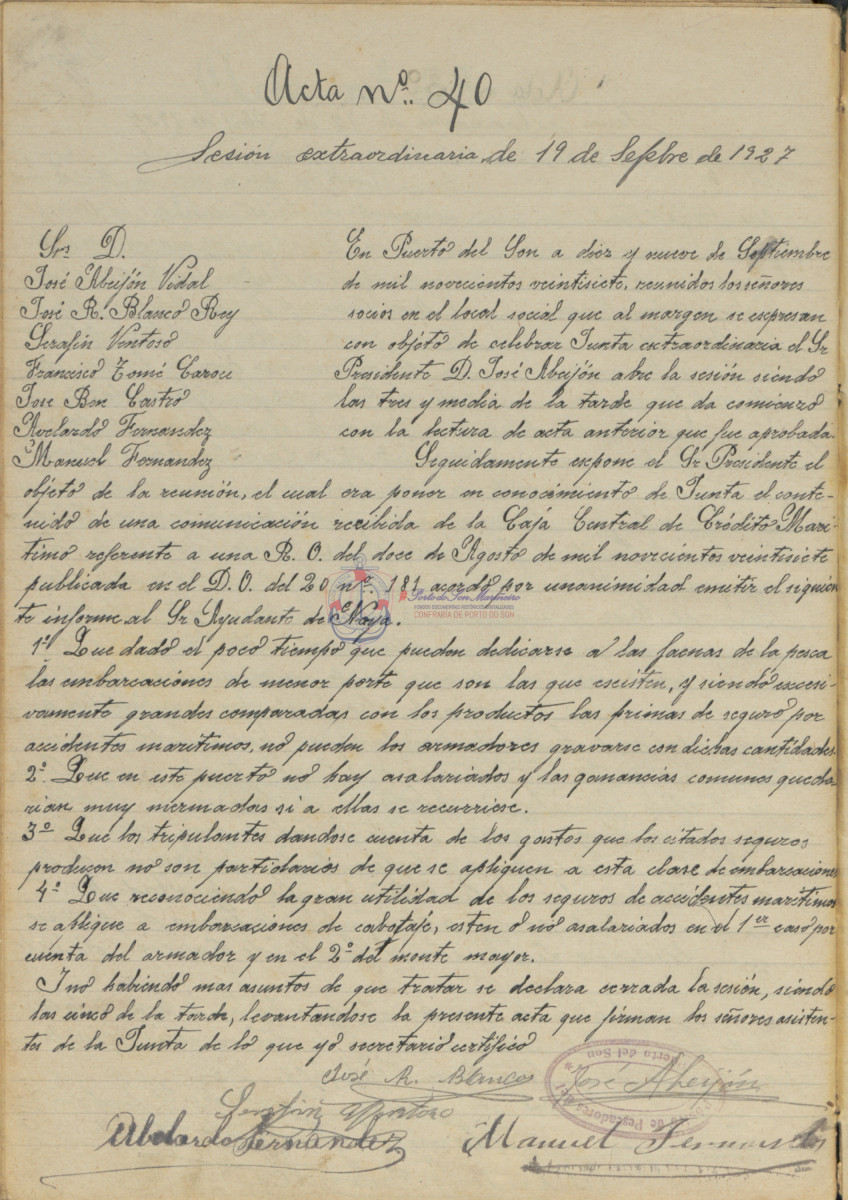 Acta nº. 40
Sesión extraordinaria de 19 de Sepbre de 1927
Srs D.
José Abeijón Vidal
José R. Blanco Rey
Serafin Ventoso
Francisco Tomé Carou
Jose Ben Castro
Avelardo Fernandez
Manuel Fernandez
En Puerto del Son a diez y nueve de Septiembre
de mil novecientos veintisiete, reunidos los señores
socios en el local social que al margen se expresan
con objéto de celebrar Junta extraordinaria el Sr
Presidente D. José Abeijón abre la sesión siendo
las tres y media de la tarde que da comienzo
con la lectura de acta anterior que fue aprobada.
Seguidamente expone el Sr Presidente el
objeto de la reunión, el cual era poner en conocimiento de Junta el conte-
nido de una comunicación recibida de la Caja Central de Crédito Mari-
timo referente a una R. O. del doce de Agosto de mil novecientos veintisiete
publicada en el D. O. del 20 nº. 181 acordó por unanimidad emitir el siguien-
te informe al Sr Ayudante de Noya.
Porto do Son Mariñeiro
FONDOS DOCUMENTAIS HISTÓRICOS DIXITALIZADOS
CONFRARÍA DE PORTO DO SON
1º Que dado el poco tiempo que pueden dedicarse a las faenas de la pesca
las embarcaciones de menor porte que son las que escisten, y siendo escesi-
vamente grandes comparadas con los productos las primas de seguro por
accidentes maritimos, no pueden los armadores gravarse con dichas cantidades.
2º. Que en este puerto no hay asalariados y las ganancias comunes queda-
rian muy mermadas si a ellas se recurriese.
3º Que los tripulantes dandose cuenta de los gastos que los citados seguros
producen no son partidarios de que se apliquen a esta clase de embarcaciones
4º Que reconociendo la gran utilidad de los seguros de accidentes maritimos
se aplique a embarcaciones de cabotaje, esten o no asalariados en el 1er caso por
cuenta del armador y en el 2º del monte mayor.
I no habiendo mas asuntos de que tratar se declara cerrada la sesión, siendo
las cinco de la tarde, levantandose la presente acta que firman los señores asisten-
tes de la Junta de lo que yo secretario certifico
José R. Blanco José Abeijón
Serafin Ventoso
Abelardo Fernández Manuel Fernandez
de Pescadores
Puerto del Son